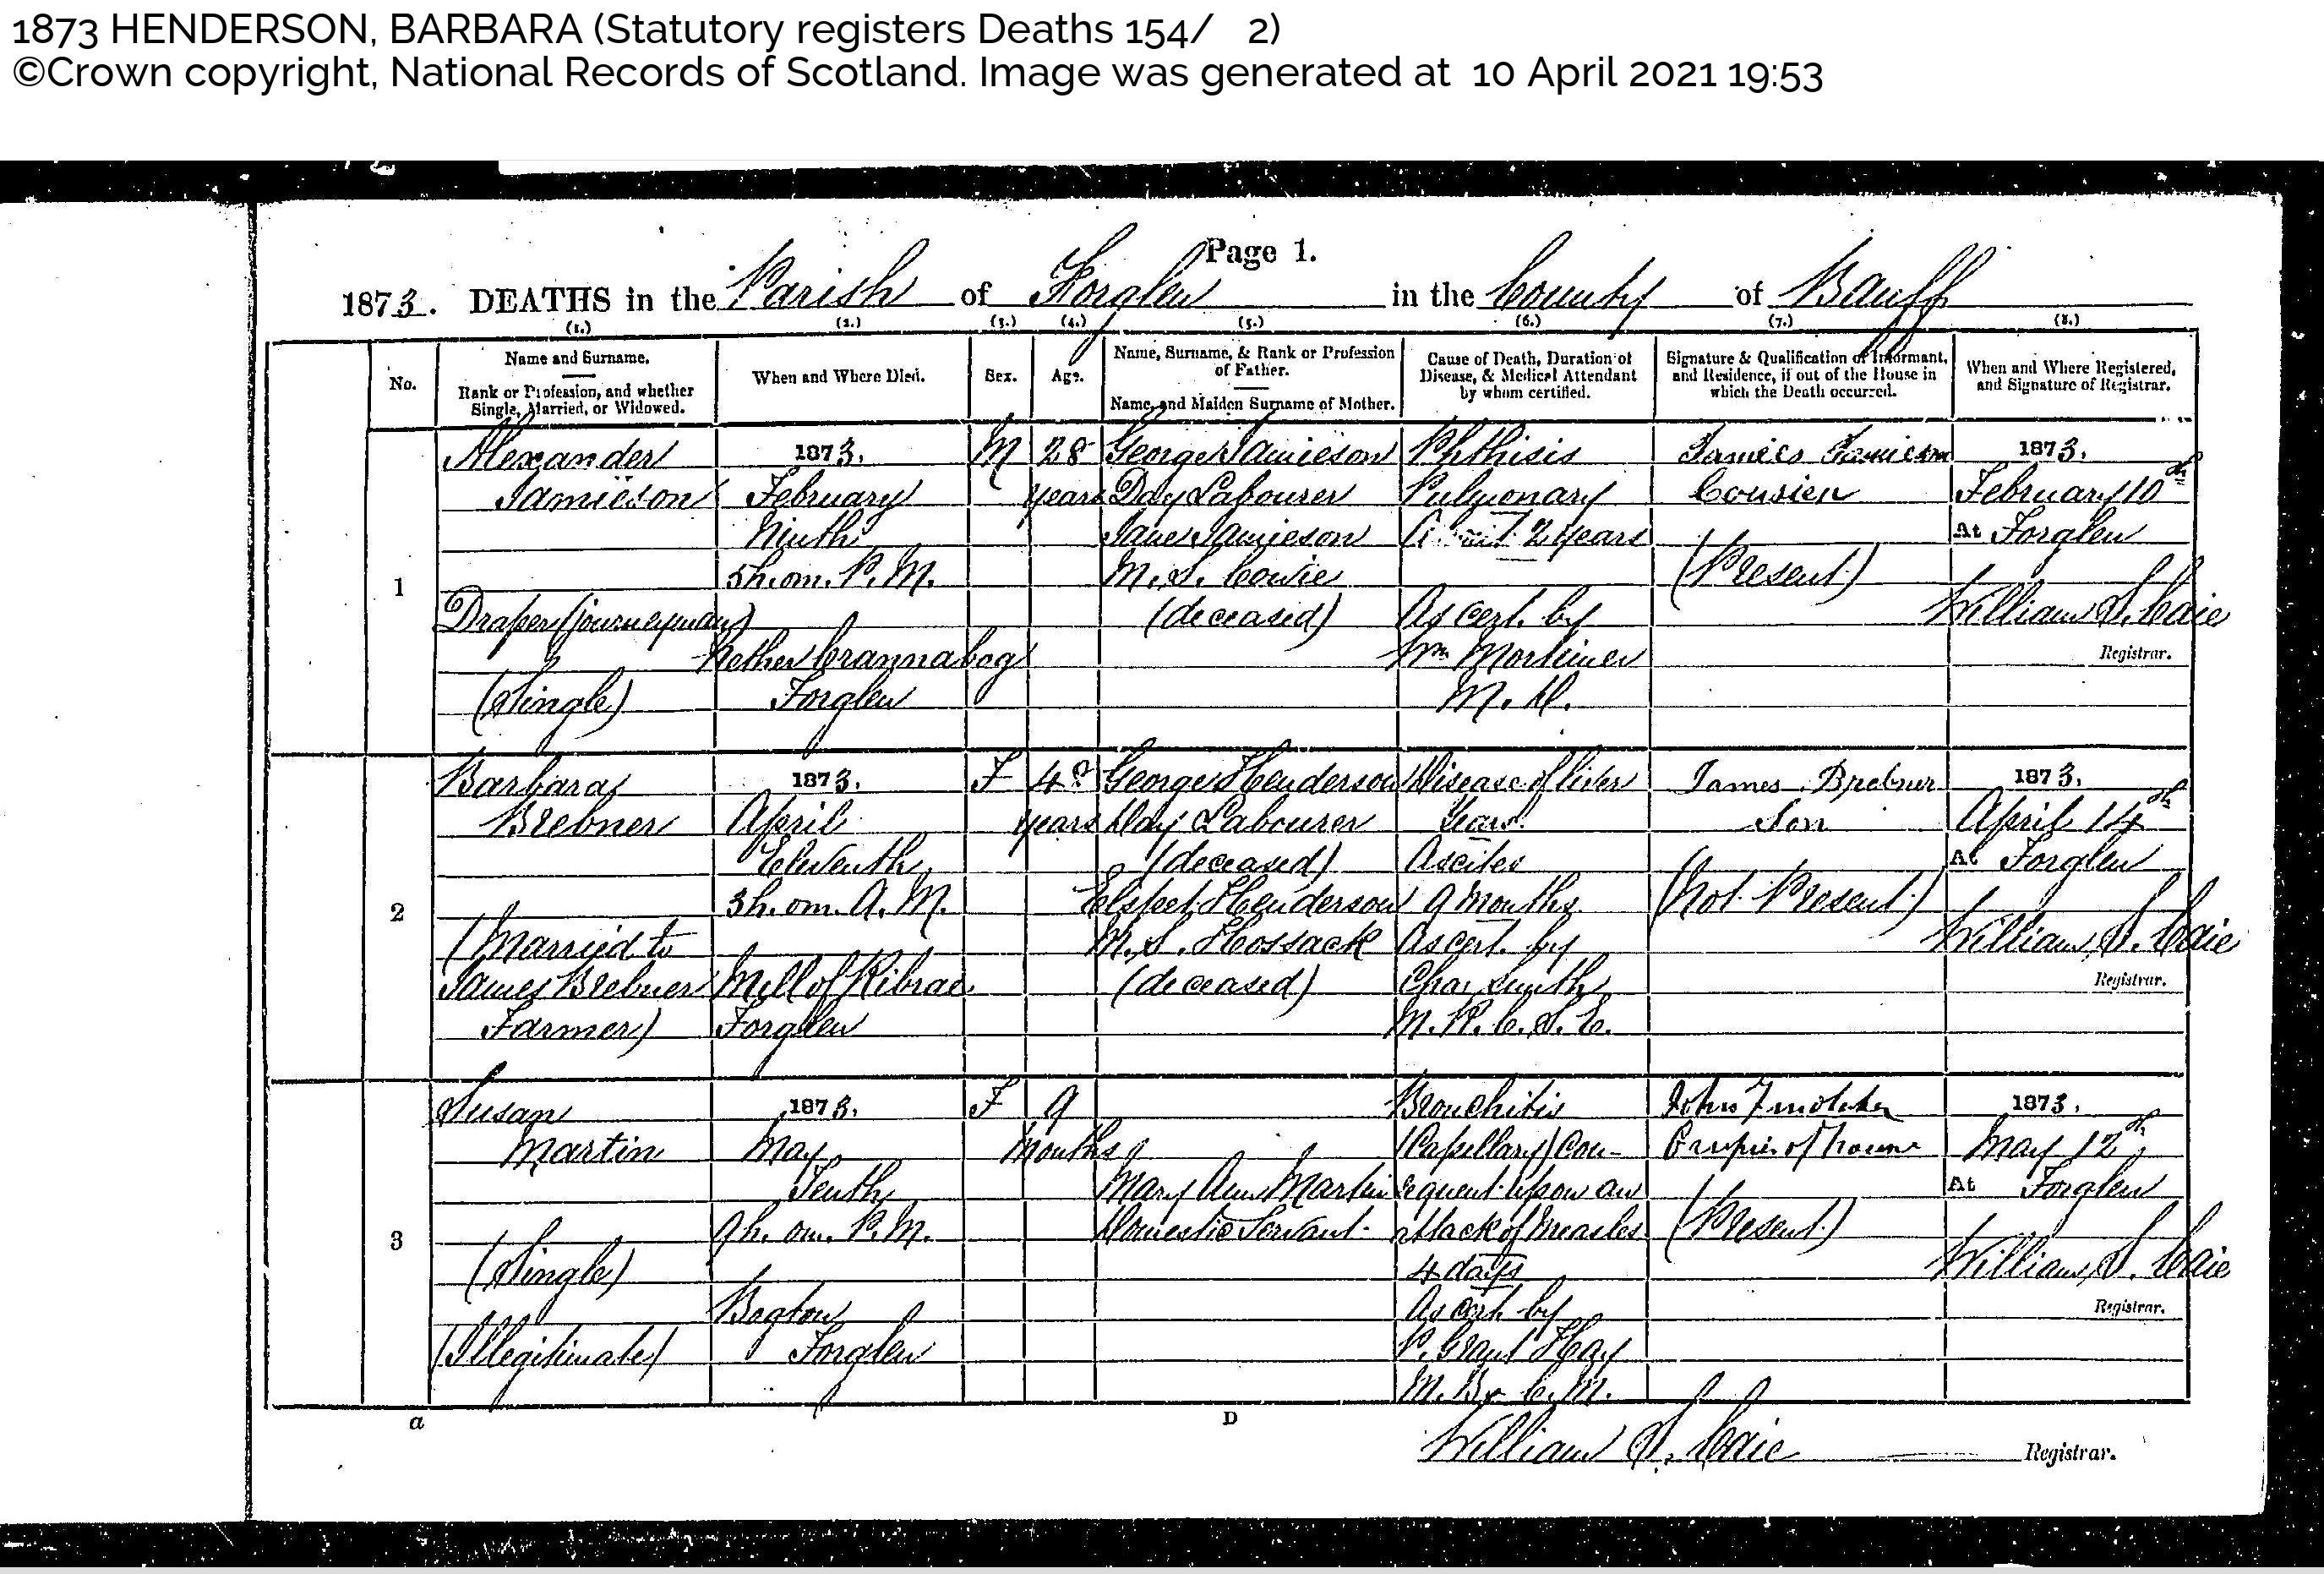 1873 HENDERSON, BARBARA (Statutory registers Deaths 154/ 2)
©Crown copyright, National Records of Scotland. Image was generated at 10 April 2021 19:53
Page 1.
1873. DEATHS in the Parish of Forglen in the County of Banff
(1.) (2.) (3.) (4.) (5.) (6.) (7.) (8.)
No.
Name and Surname.
Rank or Profession, and whether
Single, Married, or Widowed.
When and Where Died.
Sex.
Age.
Name, Surname, & Rank or Profession
of Father.
Name, and Maiden Surname of Mother.
Cause of Death, Duration of
Disease, & Medical Attendant
by whom certified.
Signature & Qualification of Informant,
and Residence, if out of the House in
which the Death occurred.
When and Where Registered,
and Signature of Registrar.
1
Alexander
Jamieson
Draper (journeyman)
(Single)
1873.
February
Ninth
5h. 0m. P.M.
Nether Crannabog
Forglen
M
28
years
George Jamieson
Day Labourer
Jane Jamieson
M.S. Cowie
(deceased)
Phthisis
Pulmonary
About 2 years
As cert. by
Wm Mortimer
M.D.
James Jamieson
Cousin
(Present)
1873.
February 10th
At Forglen
William S. Caie
Registrar.
2
Barbara
Brebner
(Married to
James Brebner
Farmer)
1873.
April
Eleventh
3h. 0m. A.M.
Mill of Ribrae
Forglen
F
years
George Henderson
Day Labourer
(deceased)
Elspet Henderson
M.S. Hossack
(deceased)
Disease of liver
Years
Ascites
9 months
As cert. by
Chas Smith
M.R.C.S.E.
James Brebner
Son
(Not Present)
1873.
April 14th
At Forglen
William S. Caie
Registrar.
3
Susan
Martin
(Single)
(Illegitimate)
1873.
May
Tenth
9h. 0m. P.M.
Bogton
Forglen
F
9
Months
Mary Ann Martin
Domestic Servant
Bronchitis
(Capillary) con-
sequent upon an
attack of measles
4 days
As cert. by
P. Grant Hay
M.B. & C.M.
John
of house
(Present)
1873.
May 12th
At Forglen
William S. Caie
Registrar.
a
D
William S. Caie Registrar.